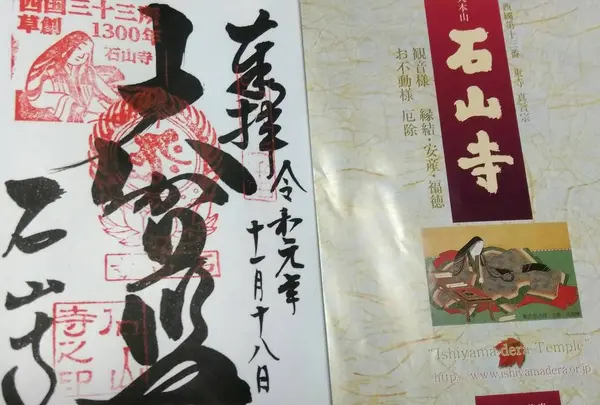 西国三十三所
草創 1300年
石山寺
奉拝
令和元年
十一月十八日
石山寺
石山寺之印
西國第十三番 東寺真言宗
本山
石山寺
観音様 縁結・安産・福徳
お不動様 厄除
"Ishiyamadera Temple"
http://www.ishiyamadera.or.jp